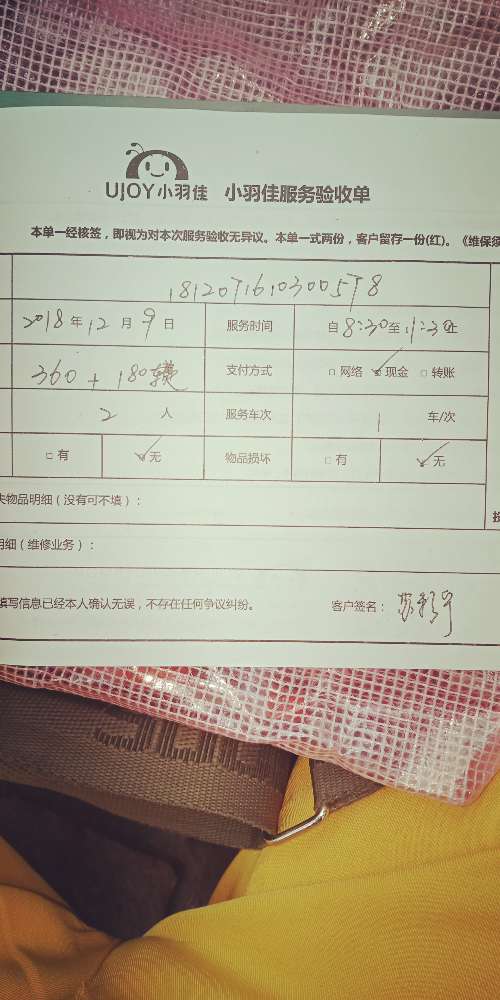 UJOY小羽佳 小羽佳服务验收单
本单一经核签，即视为对本次服务验收无异议。本单一式两份，客户留存一份(红)。《维保须
1812071610300578
2018年12月9日 服务时间 自8:30至11:30止
360+180 支付方式 □网络 ☑现金 □转账
2人 服务车次 1车/次
□有 ☑无 物品损坏 □有 ☑无
失物品明细（没有可不填）：
明细（维修业务）：
填写信息已经本人确认无误，不存在任何争议纠纷。 客户签名：